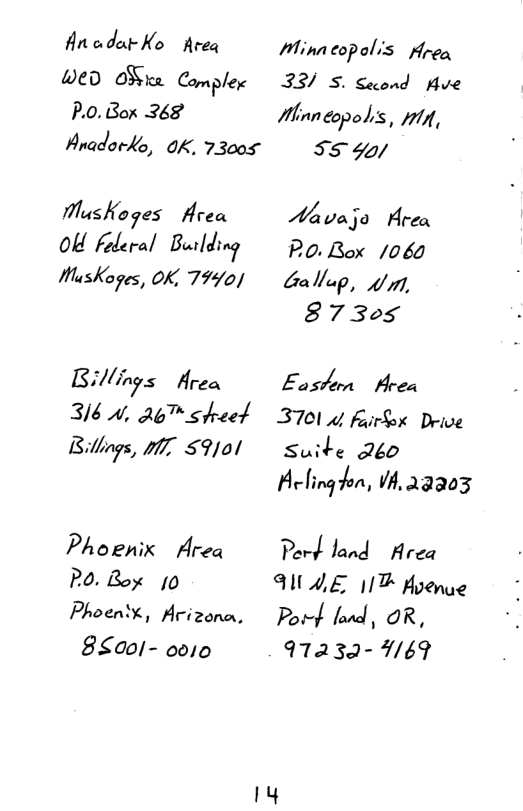 Anadarko Area
WCD Office Complex
P.O. Box 368
Anadorko, OK. 73005
Minneopolis Area
331 S. Second Ave
Minneopolis, MN.
55401
Muskoges Area
Old Federal Building
Muskoges, OK, 74401
Navajo Area
P.O. Box 1060
Gallup, NM.
87305
Billings Area
316 N. 26Th Street
Billings, MT. 59101
Eastern Area
3701 N. Fairfax Drive
Suite 260
Arlington, VA. 22203
Phoenix Area
P.O. Box 10
Phoenix, Arizona.
85001-0010
Portland Area
911 N.E. 11Th Avenue
Portland, OR,
97232-4169
14